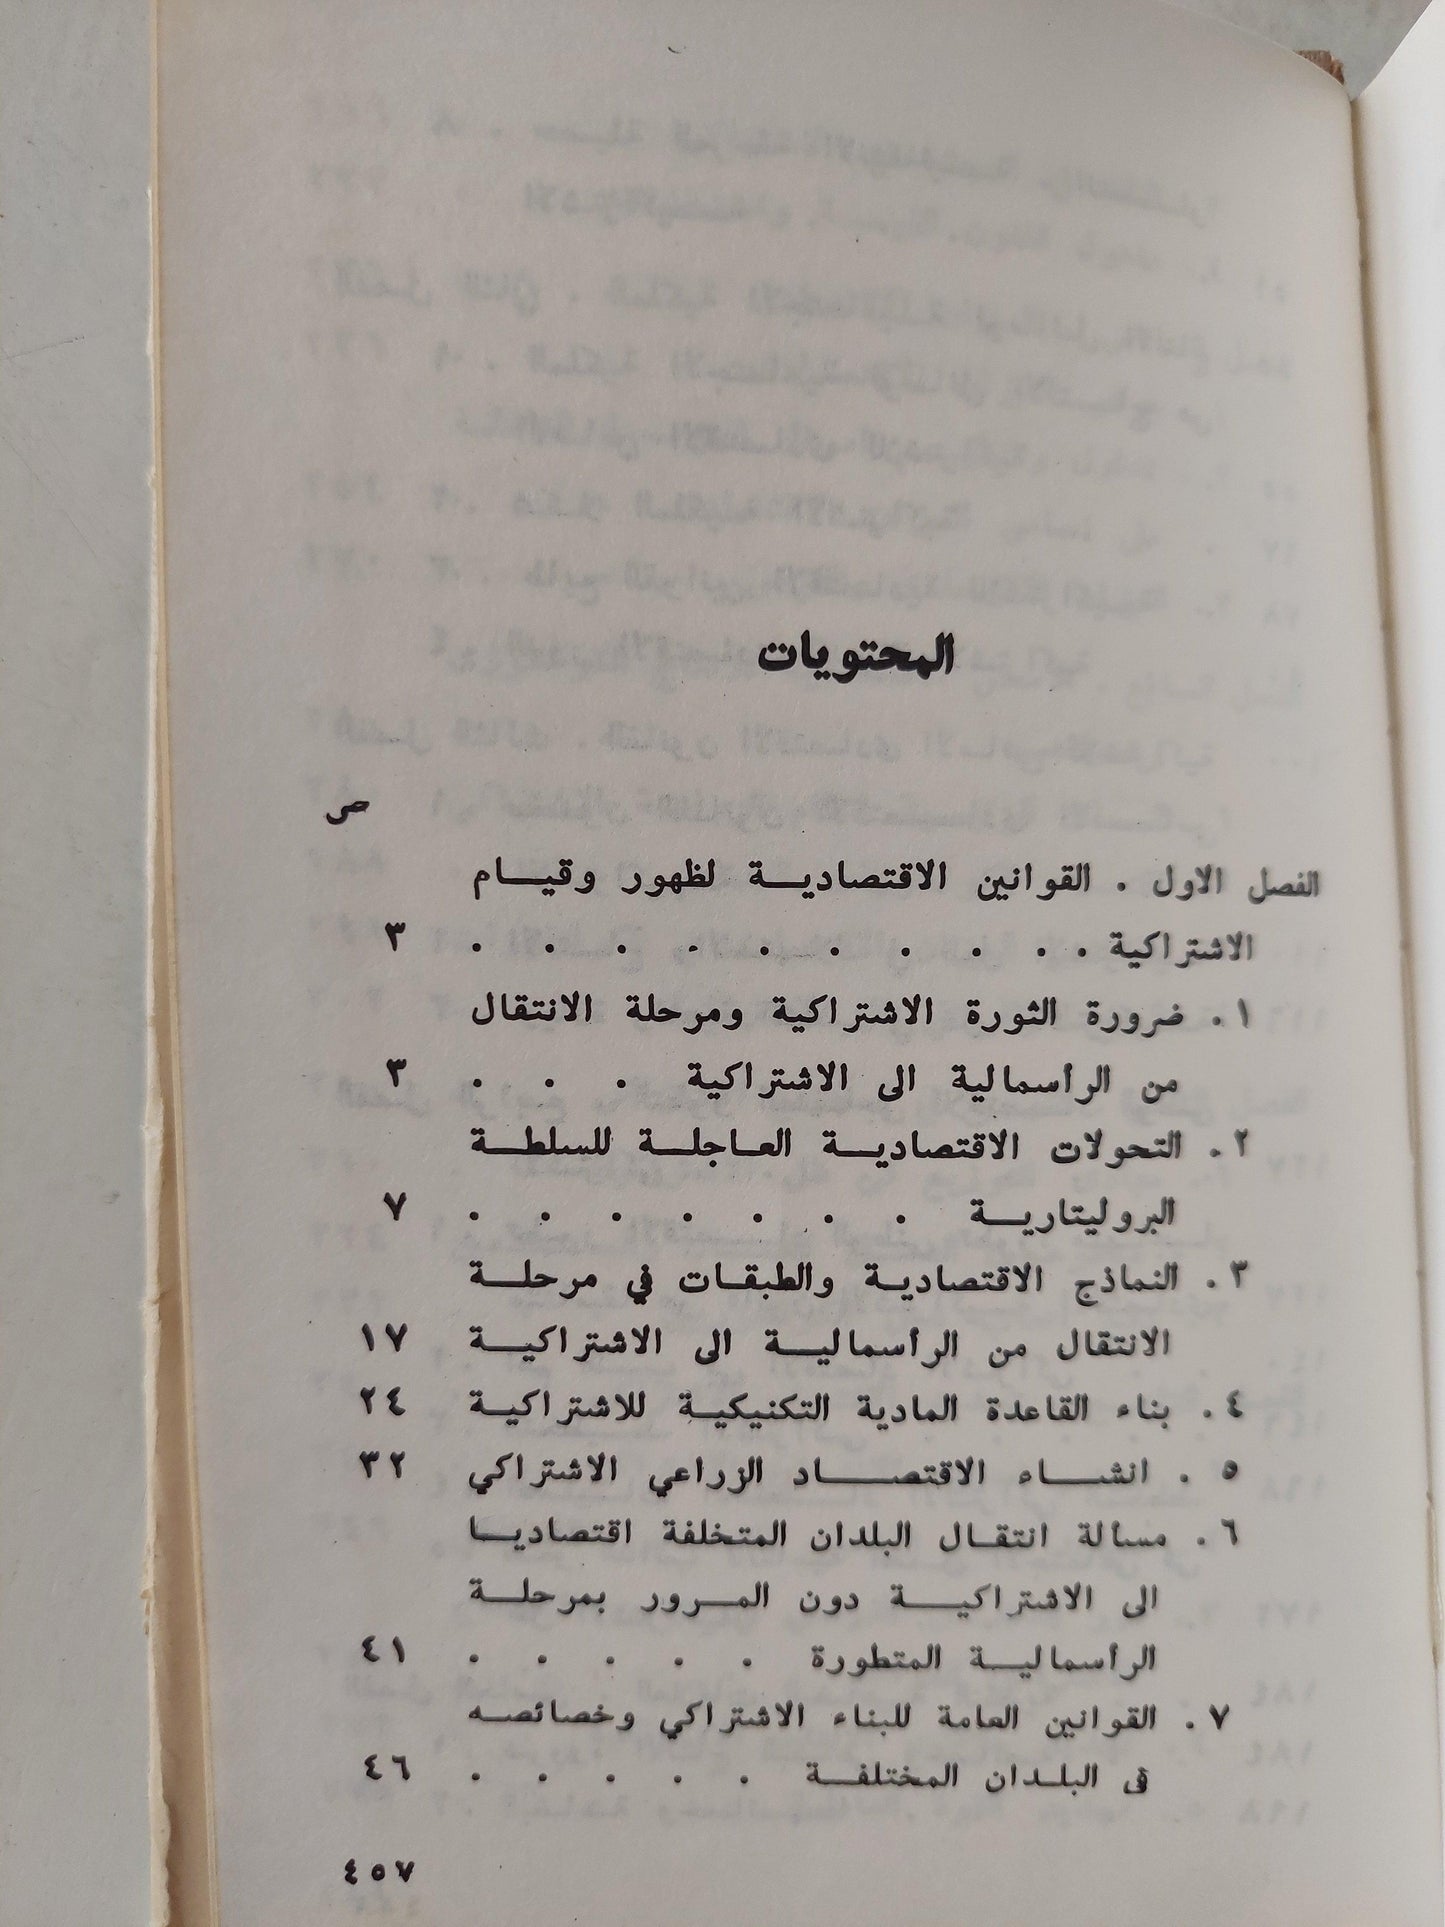 المحتويات
ص
الفصل الاول . القوانين الاقتصادية لظهور وقيام
الاشتراكية . . . . . . . . . . ٣
١ . ضرورة الثورة الاشتراكية ومرحلة الانتقال
من الرأسمالية الى الاشتراكية . . . ٣
٢ . التحولات الاقتصادية العاجلة للسلطة
البروليتارية . . . . . . . ٧
٣ . النماذج الاقتصادية والطبقات في مرحلة
الانتقال من الرأسمالية الى الاشتراكية ١٧
٤ . بناء القاعدة المادية التكنيكية للاشتراكية ٢٤
٥ . انشاء الاقتصاد الزراعي الاشتراكي ٣٢
٦ . مسألة انتقال البلدان المتخلفة اقتصاديا
الى الاشتراكية دون المرور بمرحلة
الرأسمالية المتطورة . . . . . ٤١
٧ . القوانين العامة للبناء الاشتراكي وخصائصه
في البلدان المختلفة . . . . . ٤٦
٤٥٧